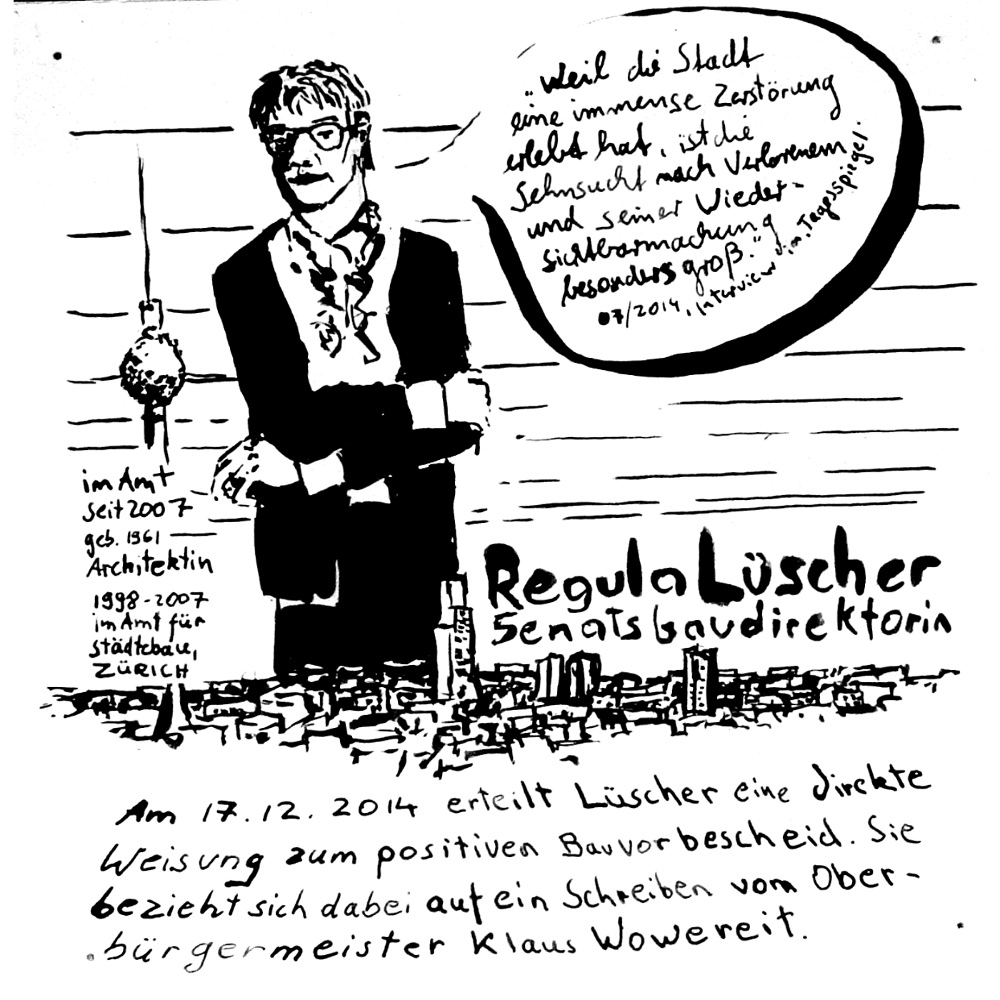 "Weil die Stadt
eine immense Zerstörung
erlebt hat, ist die
Sehnsucht nach Verlorenem
und seiner Wieder-
sichtbarmachung
besonders groß."
07/2014, Interview im Tagsspiegel.
im Amt
seit 2007
geb. 1961
Architektin
1998-2007
im Amt für
städtebau,
ZÜRICH
Regula Lüscher
Senatsbaudirektorin
Am 17.12.2014 erteilt Lüscher eine direkte
Weisung zum positiven Bauvorbescheid. Sie
bezieht sich dabei auf ein Schreiben vom Ober-
bürgermeister Klaus Wowereit.